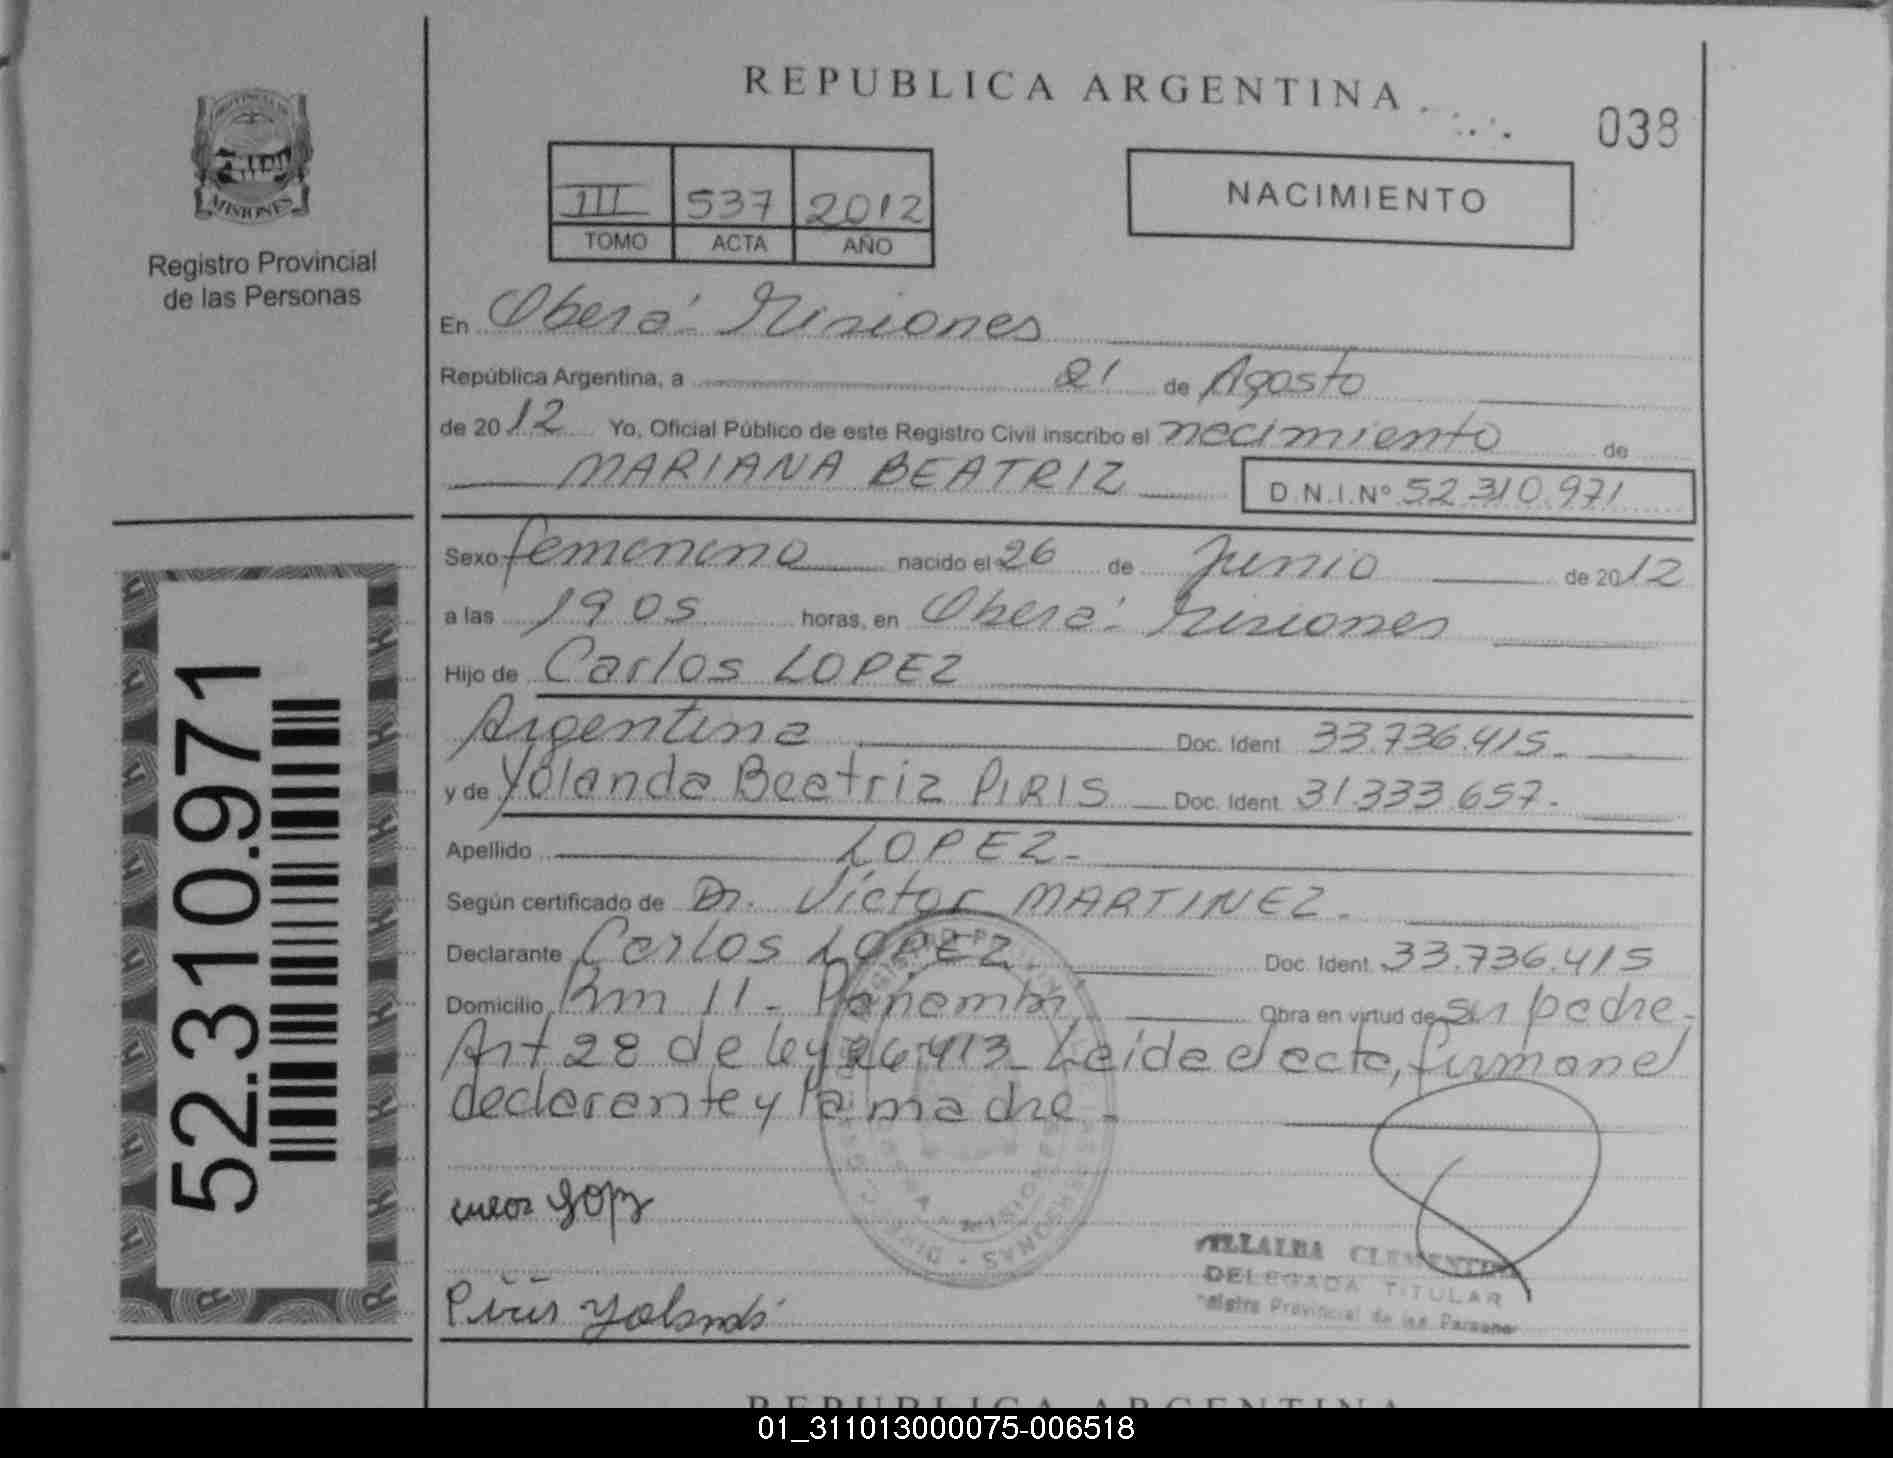 REPUBLICA ARGENTINA
038
III 537 2012
TOMO ACTA AÑO
NACIMIENTO
MISIONES
Registro Provincial
de las Personas
En Oberá Misiones
República Argentina, a 21 de Agosto
de 2012 Yo, Oficial Público de este Registro Civil inscribo el nacimiento de
MARIANA BEATRIZ D.N.I.Nº 52.310.971
Sexo femenino nacido el 26 de Junio de 2012
a las 19 05 horas, en Oberá Misiones
Hijo de Carlos LOPEZ
Argentina Doc. Ident. 33.736.415.
y de Yolanda Beatriz PIRIS Doc. Ident. 31.333.657.
Apellido LOPEZ.
Según certificado de Dr. Víctor MARTINEZ.
Declarante Carlos LOPEZ. Doc. Ident. 33.736.415
Domicilio Km 11 - Panambi, Obra en virtud de su padre,
Art 28 de ley 26.413. Leida el acta, firman el
declarante y la madre.
52.310.971
Piris Yolanda
VILLALBA CLEMENTINA
DELEGADA TITULAR
Registro Provincial de las Personas
REPUBLICA ARGENTINA
01_311013000075-006518